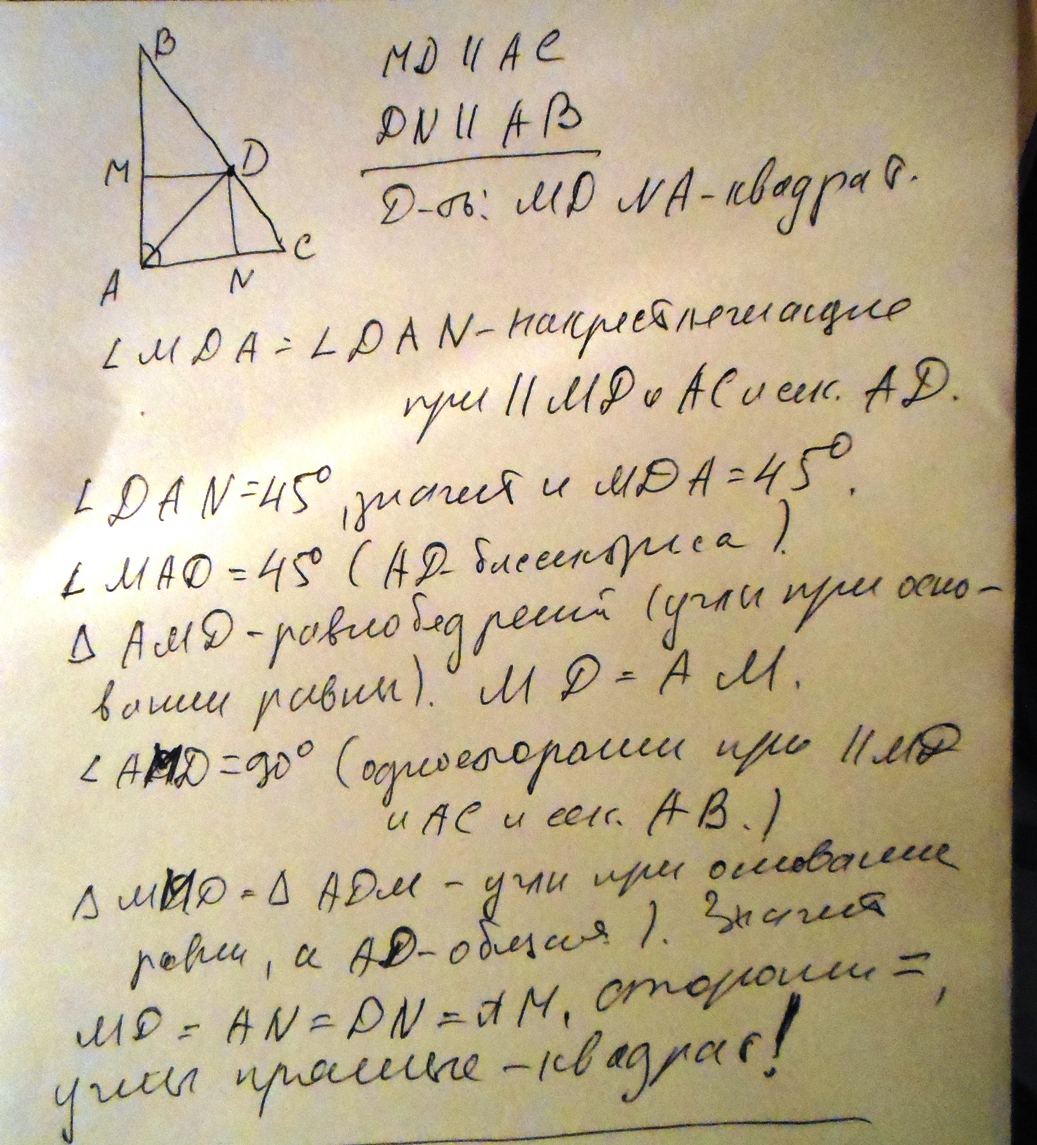 B
M
D
A
N
C
MD || AC
DN || AB
Д-ть: MDNA - квадрат.
∠MDA = ∠DAN - накрестлежащие
при || MD и AC и сек. AD.
∠DAN = 45°, значит и MDA = 45°.
∠MAD = 45° (AD - биссектриса).
Δ AMD - равнобедренный (углы при осно-
вании равны). MD = AM.
∠AMD = 90° (односторонни при || MD
и AC и сек. AB.)
= Δ ADM - углы при основание
равны, а AD - общая). Значит
MD = AN = DN = AM, стороны =,
углы прямые - квадрат!